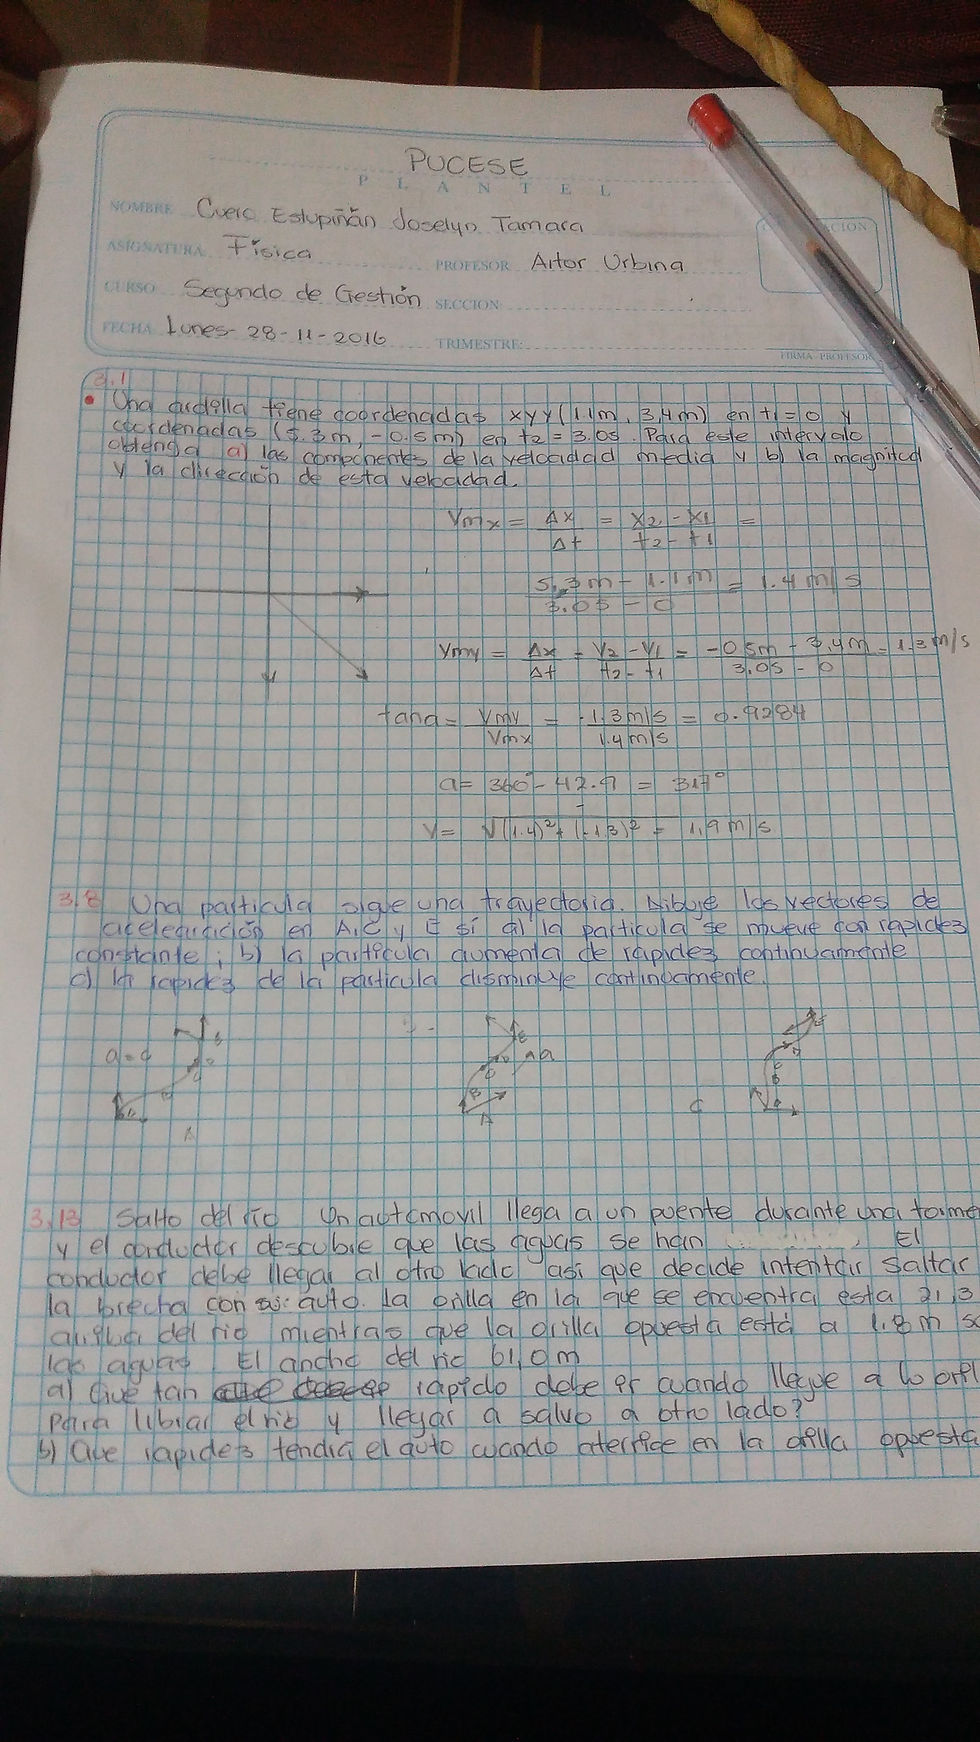 PUCESE
PLANTEL
NOMBRE Cuero Estupiñán Joselyn Tamara
ASIGNATURA Física PROFESOR Aitor Urbina
CURSO Segundo de Gestión SECCION
FECHA Lunes- 28-11-2016 TRIMESTRE:
FIRMA PROFESOR
3.1
• Una ardilla tiene coordenadas x y y (1.1m, 3,4m) en t1=0 y
coordenadas (5.3m, -0.5m) en t2=3.0s. Para este intervalo
obtenga a) las componentes de la velocidad media y b) la magnitud
y la dirección de esta velocidad.
Vmx = Δx/Δt = x2-x1/t2-t1 =
5,3m-1.1m/3.0s-0 = 1.4m/s
Vmy = Δx/Δt = Y2-Y1/t2-t1 = -0.5m-3,4m/3.0s-0 = 1,3m/s
tana = Vmy/Vmx = -1.3m/s/1.4m/s = 0.9284
a= 360°-42.9 = 317°
V= √(1.4)²+(-1,3)² = 1,9m/s
3.8 Una particula sige una trayectoria. Dibuje los vectores de
aceleración en A,C y E si a) la particula se mueve con rapidez
constante; b) la partícula aumenta de rapidez continuamente
c) la rapidez de la particula disminuye continuamente.
A
a
A
C
3.13 Salto del río Un automovil llega a un puente durante una torme
y el conductor descubre que las aguas se han El
conductor debe llegar al otro lado asi que decide intentar saltar
la brecha con su auto. La orilla en la que se encuentra esta 21,3
del rio mientras que la orilla opuesta está a 1.8m so
las aguas. El ancho del rio 61,0m
a) Que tan rapido debe ir cuando llegue a la oril
para librar el rio y llegar a salvo a otro lado?
b) Que rapidez tendria el auto cuando aterrice en la orilla opuesta